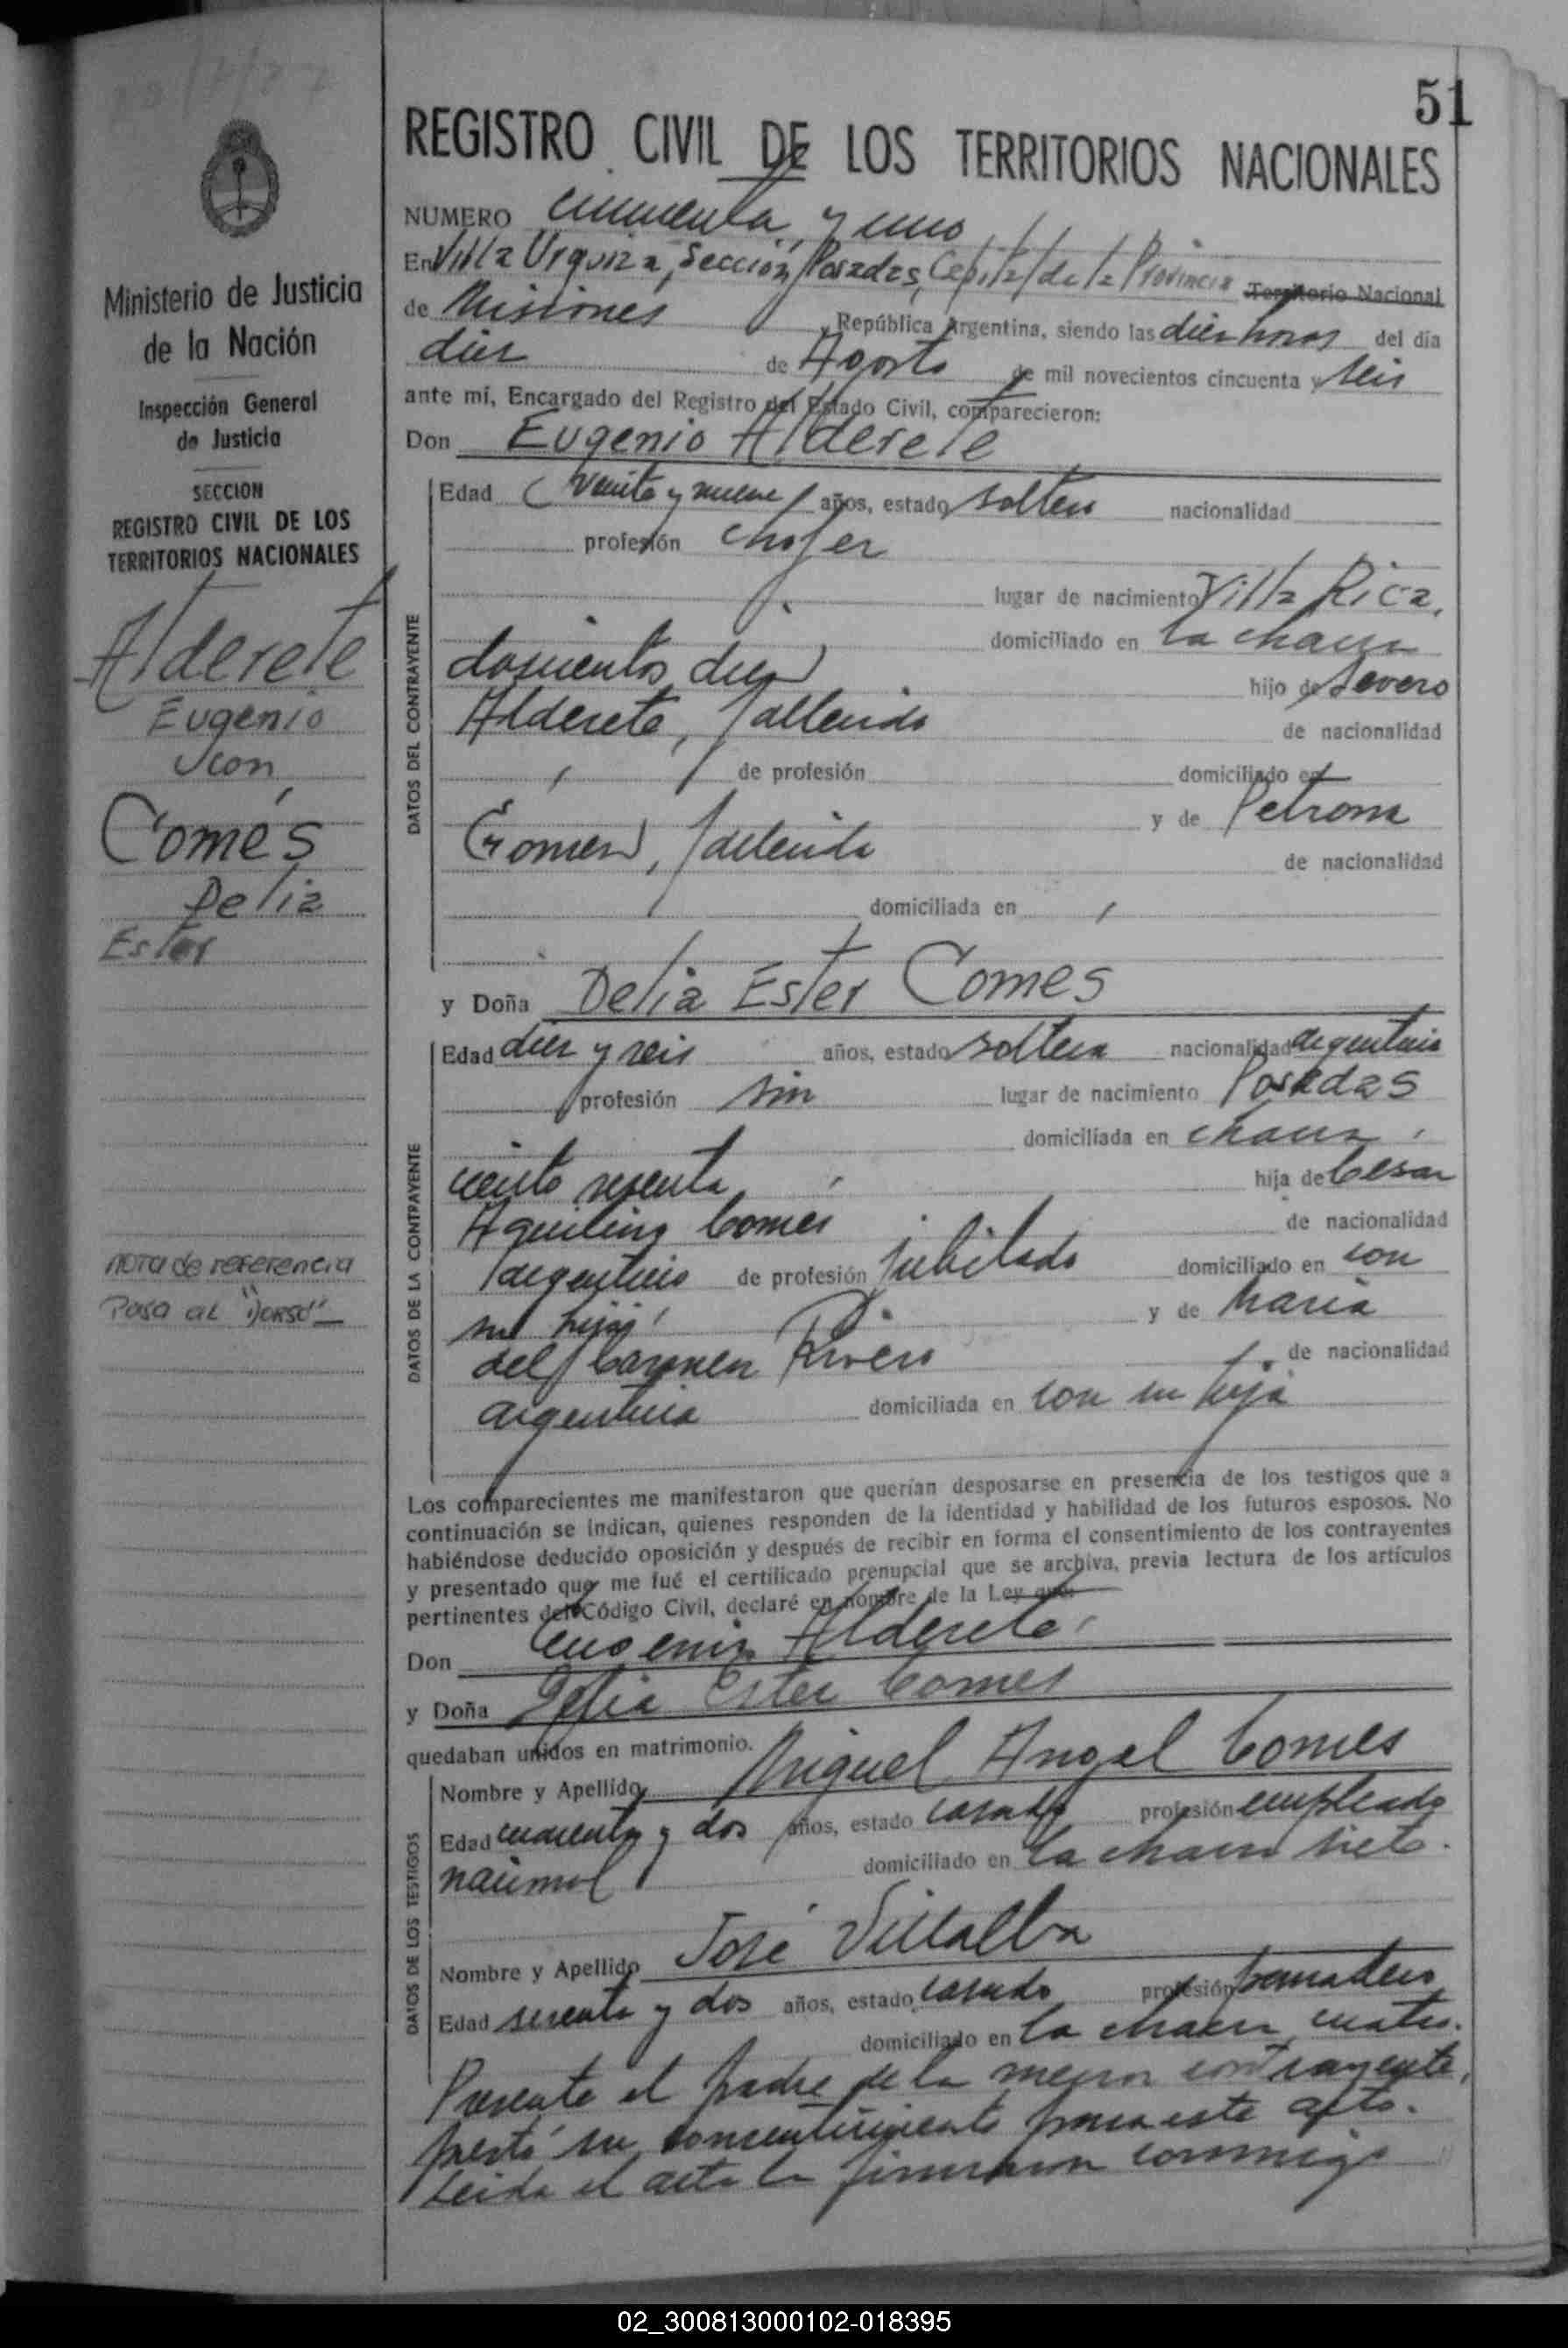 51
REGISTRO CIVIL DE LOS TERRITORIOS NACIONALES
NUMERO cincuenta y uno
En Villa Urquiza, Sección Posadas, Capital de la Provincia Territorio Nacional
de Misiones, República Argentina, siendo las diez horas del día
diez de Agosto de mil novecientos cincuenta y seis
ante mí, Encargado del Registro del Estado Civil, comparecieron:
Don Eugenio Alderete
Edad veinte y nueve años, estado soltero nacionalidad
profesión chofer
lugar de nacimiento Villa Rica,
domiciliado en la chacra
doscientos diez hijo de Severo
Alderete, fallecido de nacionalidad
de profesión domiciliado en
y de Petrona
Gomez, fallecida de nacionalidad
domiciliada en
y Doña Delia Ester Comes
Edad diez y seis años, estado soltera nacionalidad argentina
profesión sin lugar de nacimiento Posadas
domiciliada en chacra
ciento sesenta hija de Cesar
Aquilino Comes de nacionalidad
argentino de profesión jubilado domiciliado en con
su hija y de Maria
del Carmen Rivero de nacionalidad
argentina domiciliada en con su hija
Los comparecientes me manifestaron que querían desposarse en presencia de los testigos que a
continuación se indican, quienes responden de la identidad y habilidad de los futuros esposos. No
habiéndose deducido oposición y después de recibir en forma el consentimiento de los contrayentes
y presentado que me fué el certificado prenupcial que se archiva, previa lectura de los artículos
pertinentes del Código Civil, declaré en nombre de la Ley que:
Don Eugenio Alderete
y Doña Delia Ester Comes
quedaban unidos en matrimonio.
Nombre y Apellido Miguel Angel Comes
Edad cuarenta y dos años, estado casado profesión empleado
nacional domiciliado en la chacra siete.
Nombre y Apellido José Villalba
Edad sesenta y dos años, estado casado profesión panadero
domiciliado en la chacra cuatro.
Presente el padre de la menor contrayente,
prestó su consentimiento para este acto.
Leida el acta la firmaron conmigo
DATOS DEL CONTRAYENTE
DATOS DE LA CONTRAYENTE
DATOS DE LOS TESTIGOS
Ministerio de Justicia
de la Nación
Inspección General
de Justicia
SECCION
REGISTRO CIVIL DE LOS
TERRITORIOS NACIONALES
Alderete
Eugenio
con
Comés
Delia
Ester
nota de referencia
Pasa al "Dorso"
02_300813000102-018395